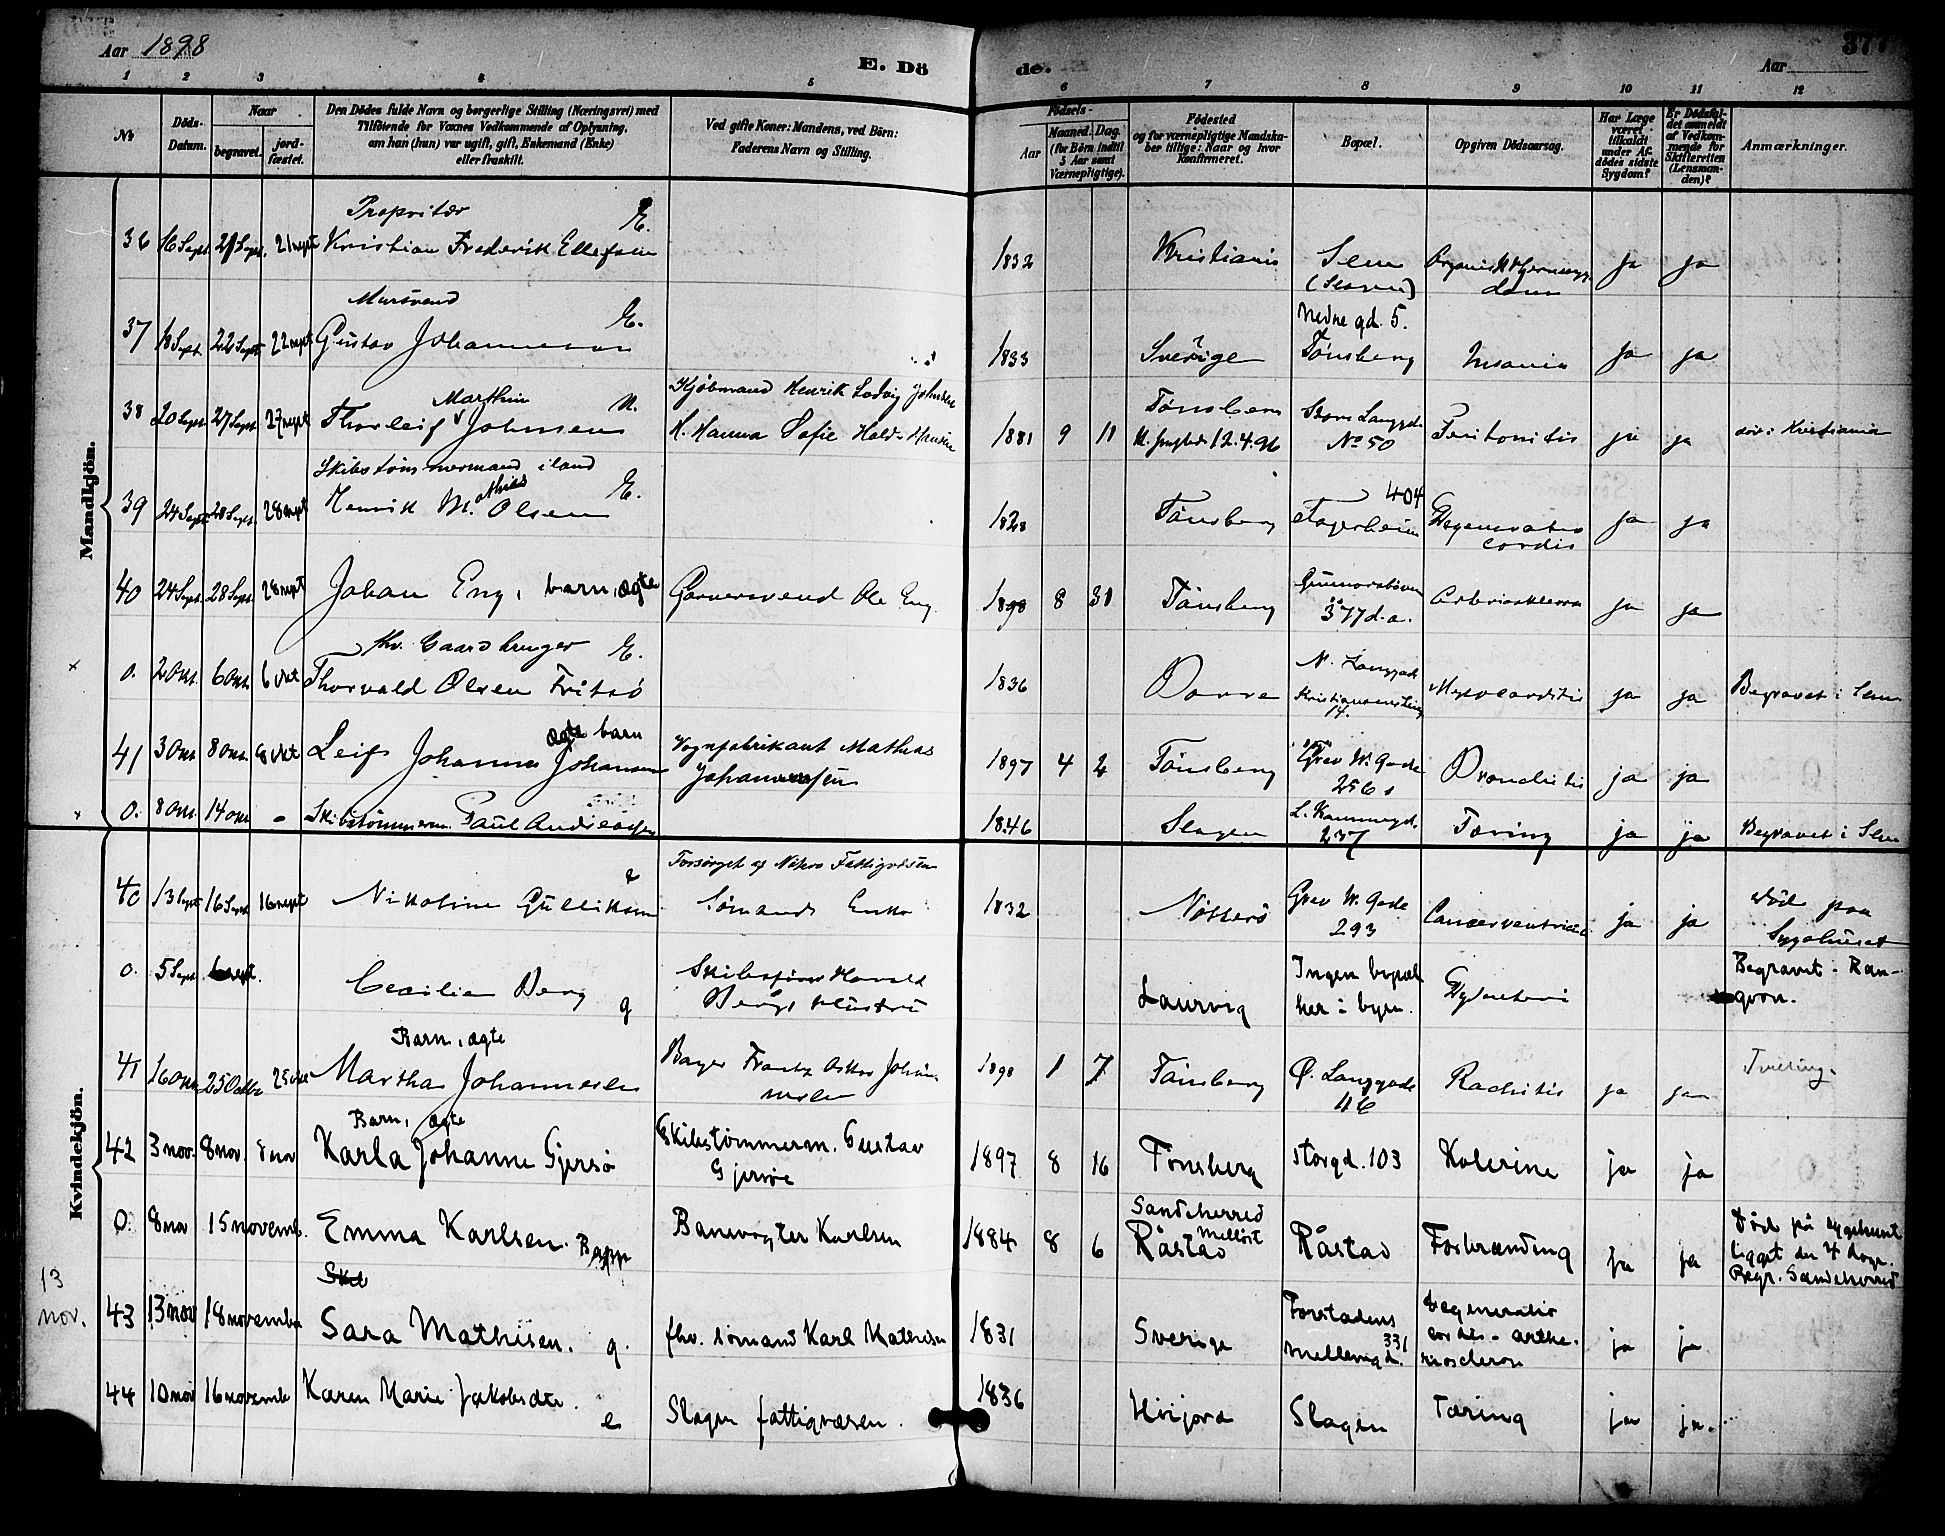 Aar 1898
E. Dö
de.
Aar
377
1 2 3 4 5 6 7 8 9 10 11 12
No
Döds-
Datum.
Naar
begravet.
jord-
fæstet.
Den Dödes fulde Navn og borgerlige Stilling (Næringsvei) med
Tilföiende for Voxnes Vedkommende af Oplysning,
om han (hun) var ugift, gift, Enkemand (Enke)
eller fraskilt.
Ved gifte Koner: Mandens, ved Börn:
Faderens Navn og Stilling.
Födsels-
Aar
Maaned. Dag.
(for Börn indtil
5 Aar samt
Værnepligtige).
Födested
og for værnepligtige Mandska-
ber tillige: Naar og hvor
Konfirmeret.
Bopæl.
Opgiven Dödsaarsag.
Har Læge
været
tilkaldt
under Af-
dödes sidste
Sygdom?
Er Dödsfal-
det anmeldt
af Vedkom-
mende for
Skifteretten
(Lensman-
den)?
Anmærkninger.
Mandkjön.
Propritær E.
36 16 Sept. 21 Sept. 21 sept Kristian Frederik Ellefsen 1832 Kristiania Sem ja ja
(Slagen)
Mursvend E. Nedre gd. 5.
37 18 Sept. 22 Sept. 22 sept Gustav Johannesen 1833 Sverige Tønsberg Insania ja ja
Marthin U. Kjøbmand Henrik Ludvig Johnsen Tønsberg
38 20 Sept. 27 Sept. 27 sept Thorleif Johnsen H. Hanna Sofie 1881 9 11 12.4.96 No 50 Peritonitis ja ja død i Kristiania
Skibstømmermand iland E. 404
39 24 Sept. 28 Sept. 28 sept Henrik Mathias Olsen 1828 Tønsberg Fagerheim Degeneratio
cordis ja ja
40 24 Sept. 28 Sept. 28 sept Johan Eng, barn, ægte Garversvend Ole Eng. 1898 8 31 Tønsberg
377 d.a. ja ja
fhv. Gaardbruger E. N. Langgade
0. 2 Okt. 6 Okt. 6 okt Thorvald Olsen Fritsø 1836 Myocarditis ja ja Begravet i Sem
14.
ægte barn
41 3 Okt 8 Okt. 8 okt Leif Johannes Johansen Vognfabrikant Mathias
Johannessen 1897 4 2 Tønsberg Grev W. Gade
256 ja ja
0. 8 Okt. 14 okt - Skibstømmerm. Paul Andreassen 1846 Slagen L. Kammegd.
237 Tæring ja ja Begravet i Sem
Kvindekjön.
Forsørget af Nøtterø Fattigvæsen
40 13 Sept 16 Sept 16 sept Nikoline Gulliksen e Sømands Enke 1832 Nøtterø Grev W. Gade
293 Cancer ventriculi ja ja død paa
Sygehuset
0. 5 Sept. Cecilie Berg g Skibsfører Harald
Bergs Hustru Laurvig Ingen bopæl
her i byen. Dysenteri Begravet i Ran-
goon.
Barn, ægte
41 16 Okt 25 Octbr 25 okt Martha Johannesen Bager Frantz Oskar Johan-
nesen 1898 1 7 Tønsberg Ø. Langgade
46 Rachitis ja ja Tvilling.
Barn, ægte
42 3 nov. 8 nov. 8 nov Karla Johanne Gjersø Skibstømmerm. Gustav
Gjersøe 1897 8 16 Tønsberg Storgd. 103 Kolerine ja ja
0. 8 nov 15 novemb. Emma Karlsen. Banevogter Karlsen 1884 8 6 Sandeherred
Råstad Råstad Forbrænding ja ja Død på sygehuset
ligget der 4 dage.
Begr. Sandeherred
13
nov.
43 13 nov 18 november Sara Mathisen. g. fhv. sømand Karl Mathisen 1831 Sverige Forstadens
331
Mellemgd. Degeneratio
cordis - arthe-
riosclerose ja ja
44 10 nov 16 novembr Karen Marie Jakobsdtr. e Slagen fattigvæsen. 1836 Hvijord Slagen Tæring ja ja.